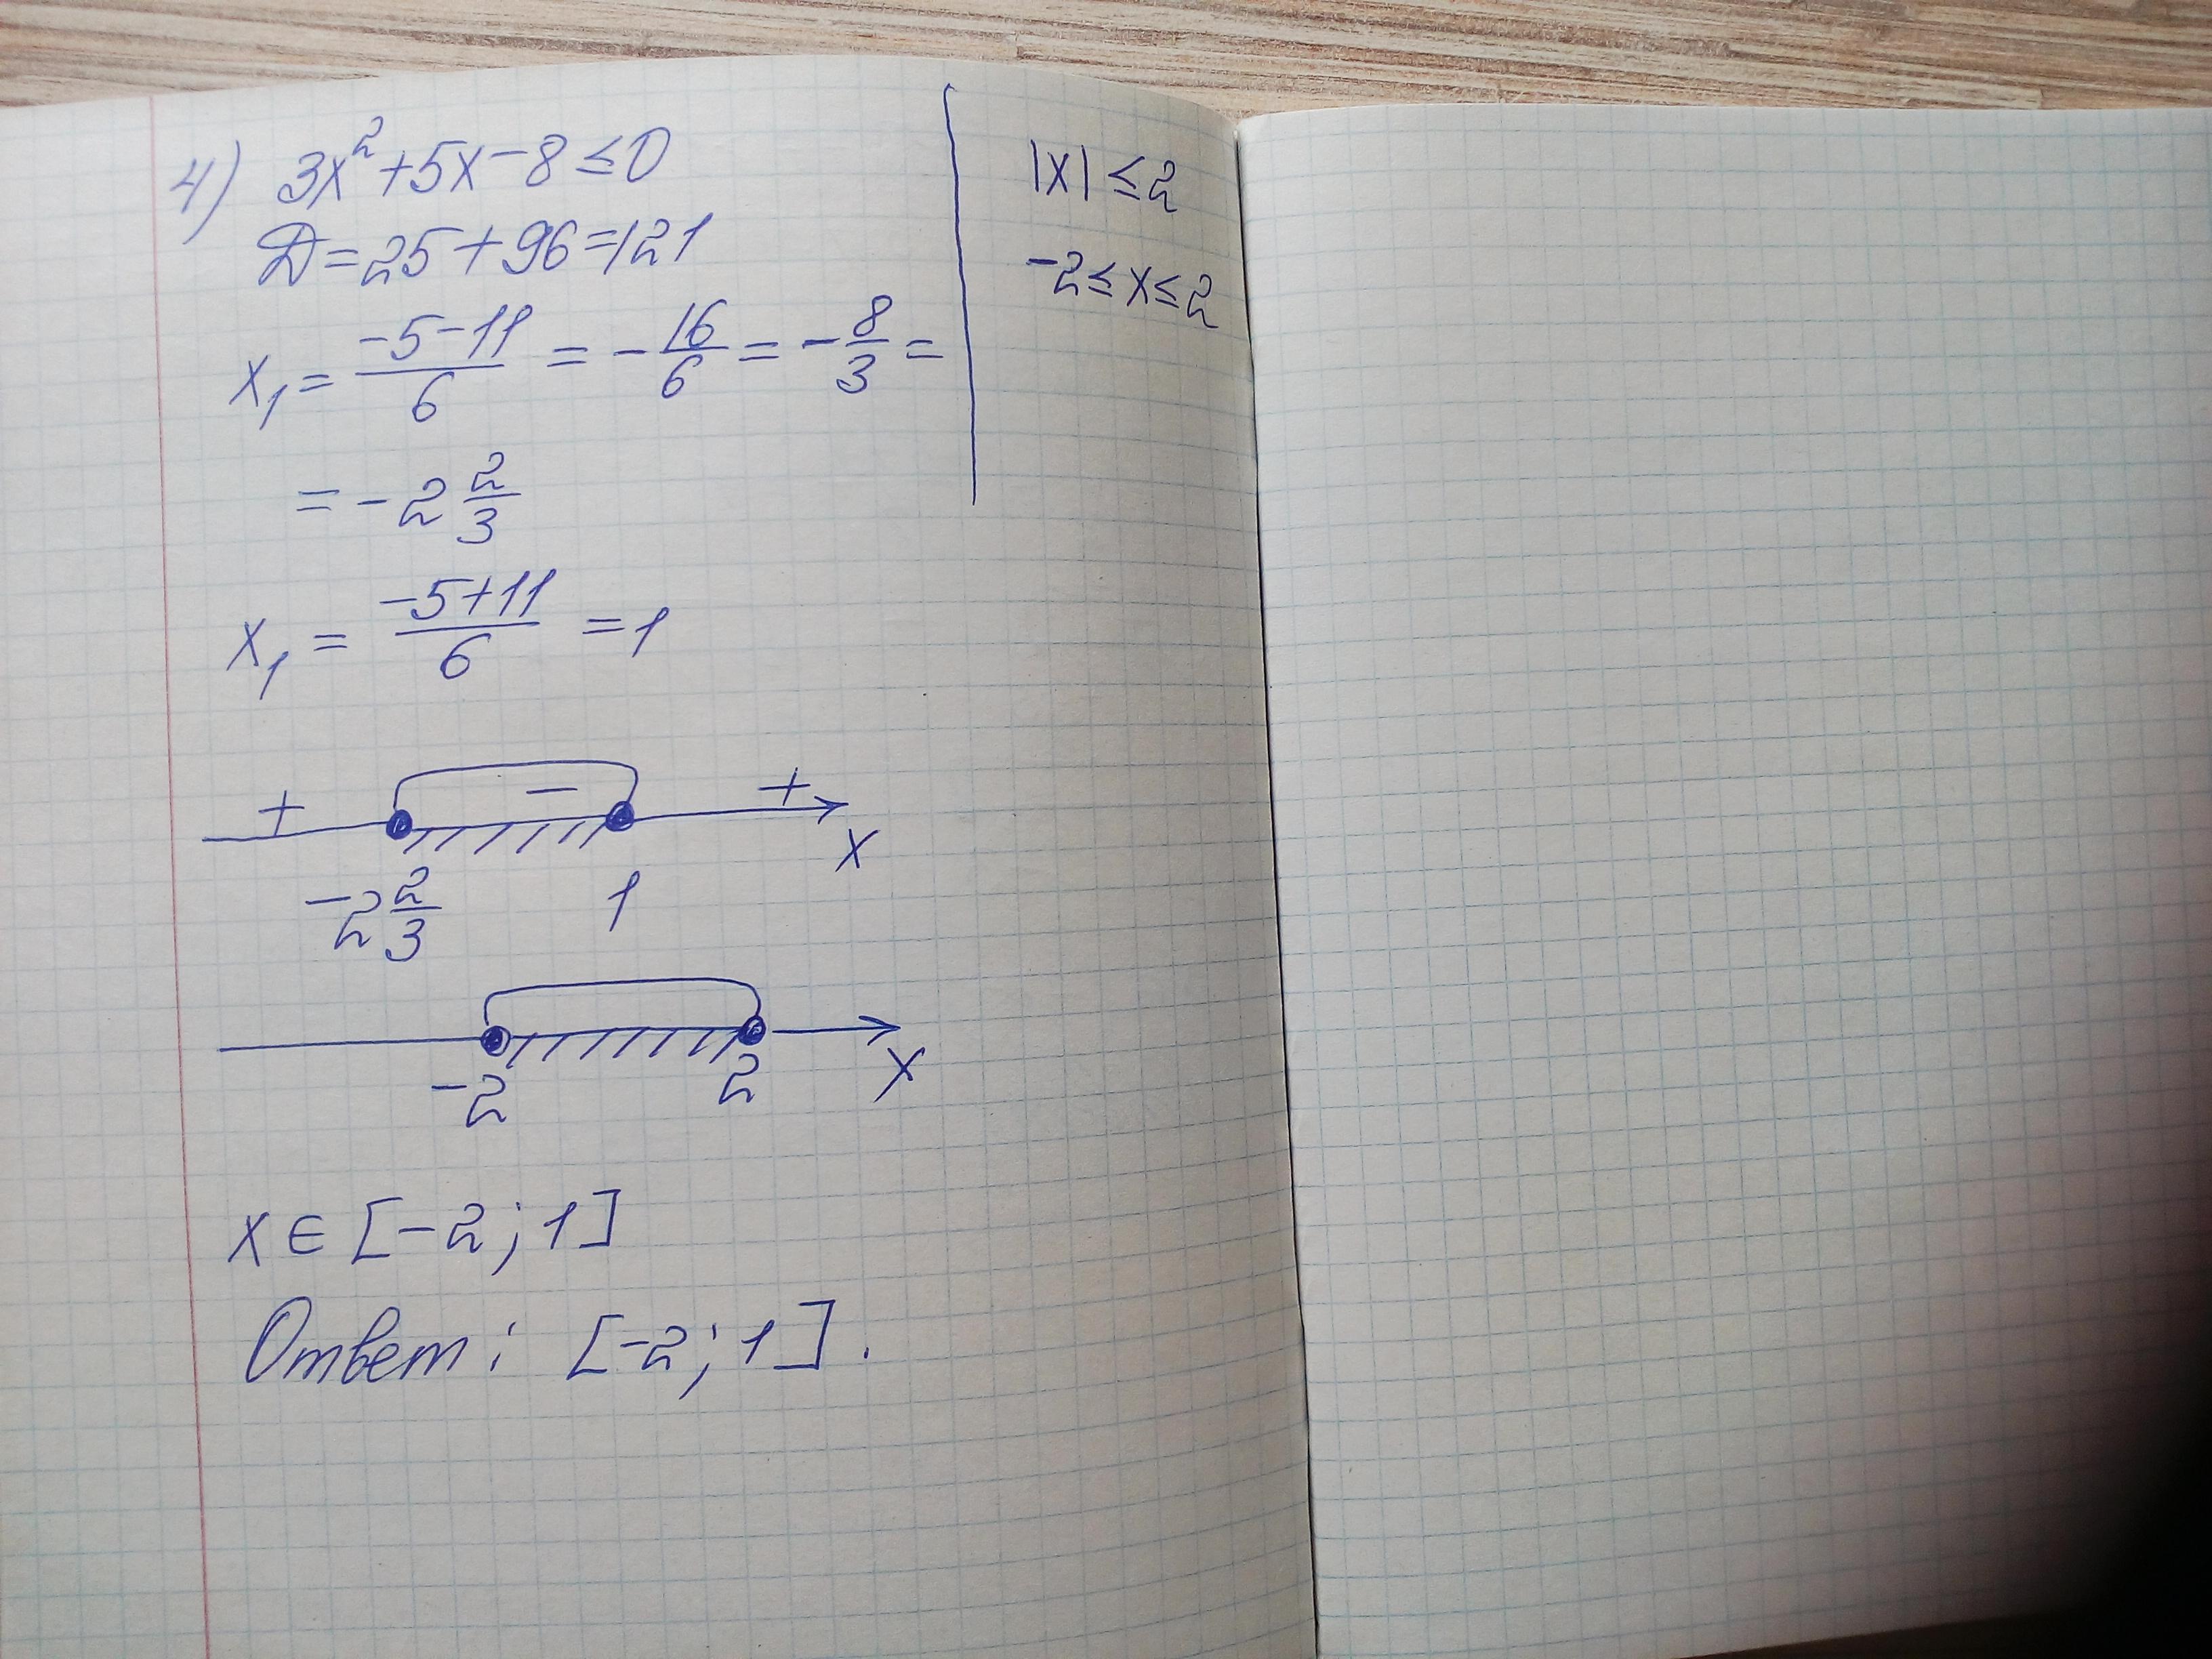 4) 3x² + 5x - 8 ≤ 0
D = 25 + 96 = 121
x₁ = (-5-11)/6 = -16/6 = -8/3 =
= -2 2/3
x₁ = (-5+11)/6 = 1
|x| ≤ 2
-2 ≤ x ≤ 2
+ - +
-2 2/3 1 x
-2 2 x
x ∈ [-2; 1]
Ответ: [-2; 1].